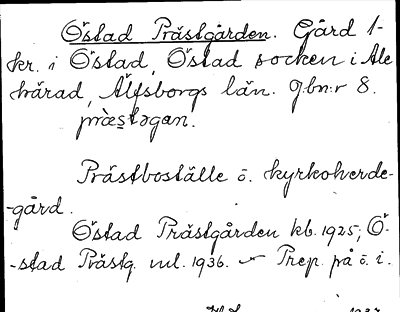 Östad Prästgården. Gård 1-
kr. i Östad, Östad socken i Ale
härad, Älfsborgs län. Gbn:r 8.
præstəgan.
Prästboställe o. kyrkoherde-
-gård.
Östad Prästgården kb. 1925; Ö-
-stad Prästg. ml. 1936. – Prep. på o. i.